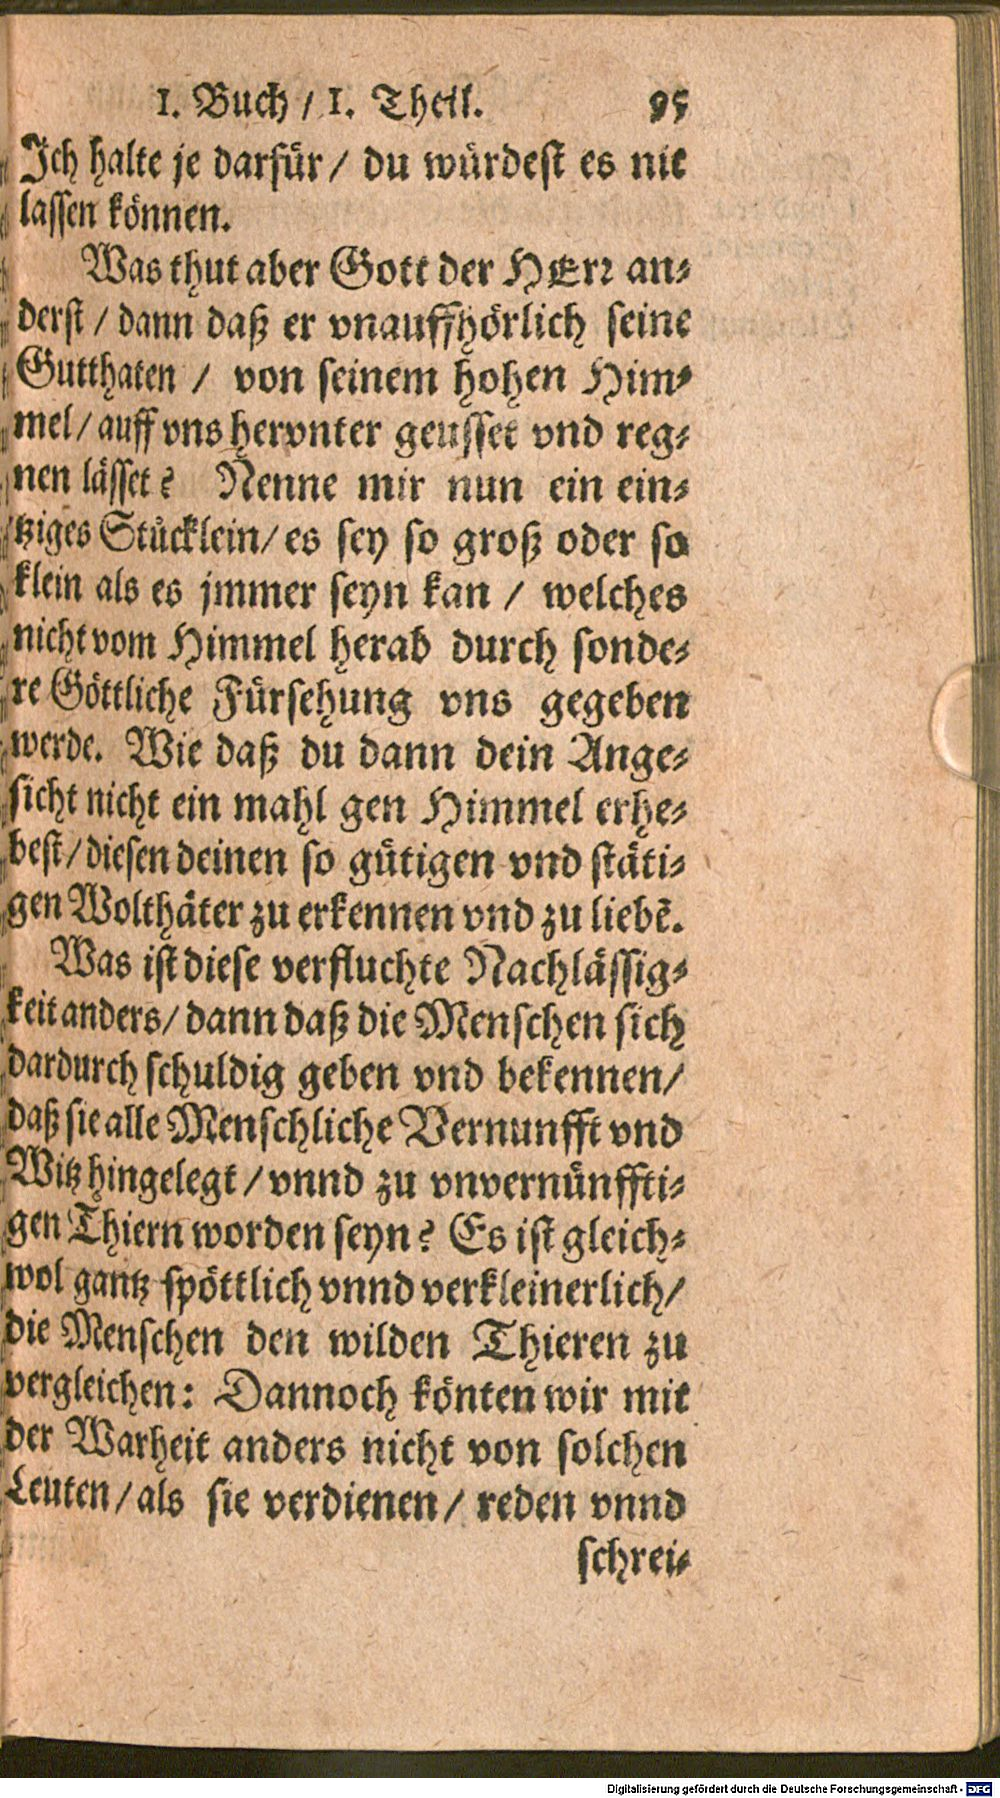 1. Buch / 1. Theil. 95
Ich halte je darfür / du würdest es nit
lassen können.
Was thut aber Gott der HErr an-
derst / dann daß er vnauffhörlich seine
Gutthaten / von seinem hohen Him-
mel / auff vns hervnter geusset vnd reg-
nen lässet? Nenne mir nun ein ein-
tziges Stücklein / es sey so groß oder so
klein als es jmmer seyn kan / welches
nicht vom Himmel herab durch sonde-
re Göttliche Fürsehung vns gegeben
werde. Wie daß du dann dein Ange-
sicht nicht ein mahl gen Himmel erhe-
best / diesen deinen so gütigen vnd stäti-
gen Wolthäter zu erkennen vnd zu liebē.
Was ist diese verfluchte Nachlässig-
keit anders / dann daß die Menschen sich
dardurch schuldig geben vnd bekennen /
daß sie alle Menschliche Vernunfft vnd
Witz hingelegt / vnnd zu vnvernünffti-
gen Thiern worden seyn? Es ist gleich-
wol gantz spöttlich vnnd verkleinerlich /
die Menschen den wilden Thieren zu
vergleichen: Dannoch könten wir mit
der Warheit anders nicht von solchen
Leuten / als sie verdienen / reden vnnd
schrei-
Digitalisierung gefördert durch die Deutsche Forschungsgemeinschaft - DFG